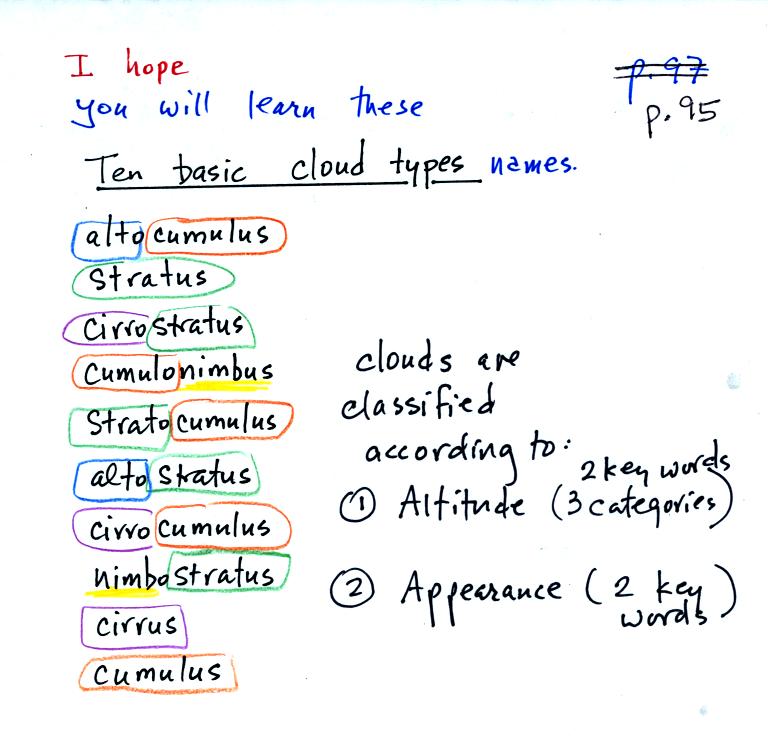 I hope
you will learn these
Ten basic cloud types names.
p.97
p.95
altocumulus
Stratus
Cirrostratus
Cumulonimbus
Stratocumulus
altostratus
cirrocumulus
nimbostratus
cirrus
cumulus
clouds are
classified
according to:
2 key words
① Altitude (3 categories)
② Appearance (2 key
words)